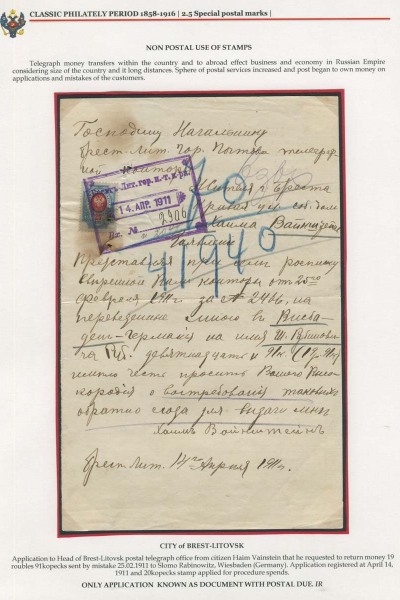 CLASSIC PHILATELY PERIOD 1858-1916 | 2.5 Special postal marks |
NON POSTAL USE OF STAMPS
Telegraph money transfers within the country and to abroad effect business and economy in Russian Empire
considering size of the country and it long distances. Sphere of postal services increased and post began to own money on
applications and mistakes of the customers.
Господину Начальнику
Брест-Лит. гор. Почтово телеграф-
ной Конторы
Жителя г. Бреста
Хаима Вайнштейн
14 АПР. 1911
Вх. № 2906
40
41940
Заявление
Представляя при сем росписку
вверенной Вам конторы от 25го
февраля 1911г. за № 2466, на
переведенные мною в Висба-
ден-Германия на имя Ш. Рабинович
девятнадцать р. 91к. (19р. 91к)
имею честь просить Вашего Высо-
кородія о востребованіи таковых
обратно сюда для выдачи мне
Хаим Вайнштейнъ
Брест Лит. 14го Апреля 1911г.
CITY of BREST-LITOVSK
Application to Head of Brest-Litovsk postal telegraph office from citizen Haim Vainstein that he requested to return money 19
roubles 91kopecks sent by mistake 25.02.1911 to Slomo Rabinowitz, Wiesbaden (Germany). Application registered at April 14,
1911 and 20kopecks stamp applied for procedure spends.
ONLY APPLICATION KNOWN AS DOCUMENT WITH POSTAL DUE. JR